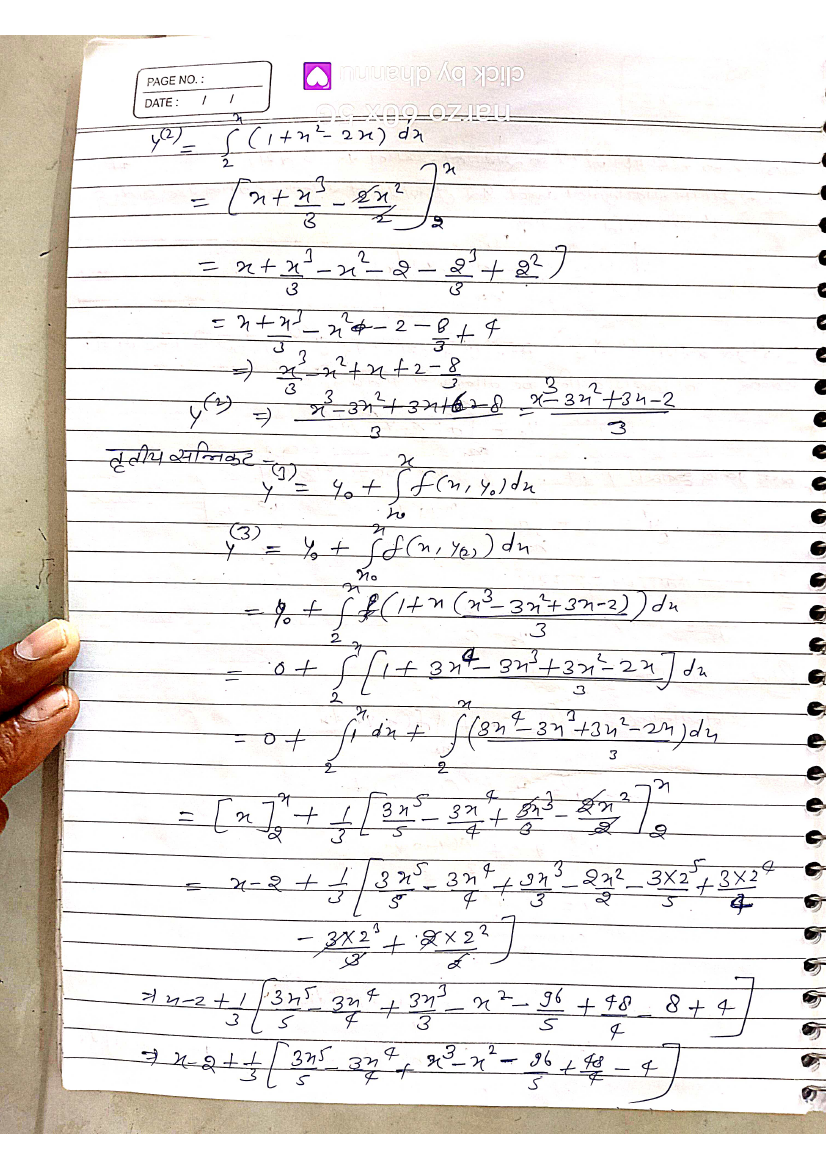 PAGE NO. :
DATE : / /
click by dhannu
narzo 60x 5G
y^(2) = ∫_2^x (1+x²-2x) dx
= [x + x³/3 - 2x²/2]_2^x
= x + x³/3 - x² - 2 - 2³/3 + 2²]
= x + x³/3 - x² - 2 - 8/3 + 4
⇒ x³/3 - x² + x + 2 - 8/3
y^(2) ⇒ (x³-3x²+3x+6-8)/3 = (x³-3x²+3x-2)/3
तृतीय सन्निकट -
y^(1) = y₀ + ∫_x₀^x f(x, y₀) dx
y^(3) = y₀ + ∫_x₀^x f(x, y₍₂₎) dx
= y₀ + ∫_2^x (1+x (x³-3x²+3x-2)/3) dx
= 0 + ∫_2^x [1 + (3x⁴-3x³+3x²-2x)/3] dx
= 0 + ∫_2^x 1 dx + ∫_2^x (3x⁴-3x³+3x²-2x)/3 dx
= [x]_2^x + 1/3 [3x⁵/5 - 3x⁴/4 + 3x³/3 - 2x²/2]_2^x
= x-2 + 1/3 [3x⁵/5 - 3x⁴/4 + 3x³/3 - 2x²/2 - 3×2⁵/5 + 3×2⁴/4
- 3×2³/3 + 2×2²/2]
⇒ x-2 + 1/3 [3x⁵/5 - 3x⁴/4 + 3x³/3 - x² - 96/5 + 48/4 - 8 + 4]
⇒ x-2 + 1/3 [3x⁵/5 - 3x⁴/4 + x³ - x² - 96/5 + 48/4 - 4]